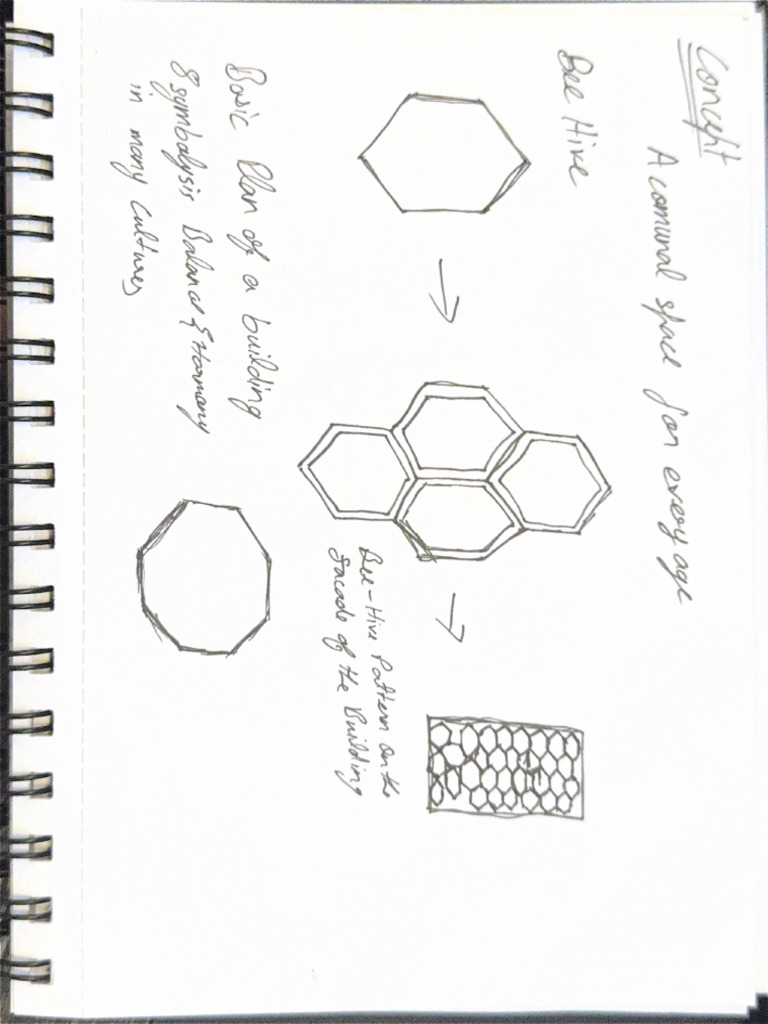 Concept
A comunal space for every age
Bee Hive
Bee-Hive Pattern on the
facade of the Building
Basic Plan of a building
8 symbolysis Balance & Harmony
in many cultures